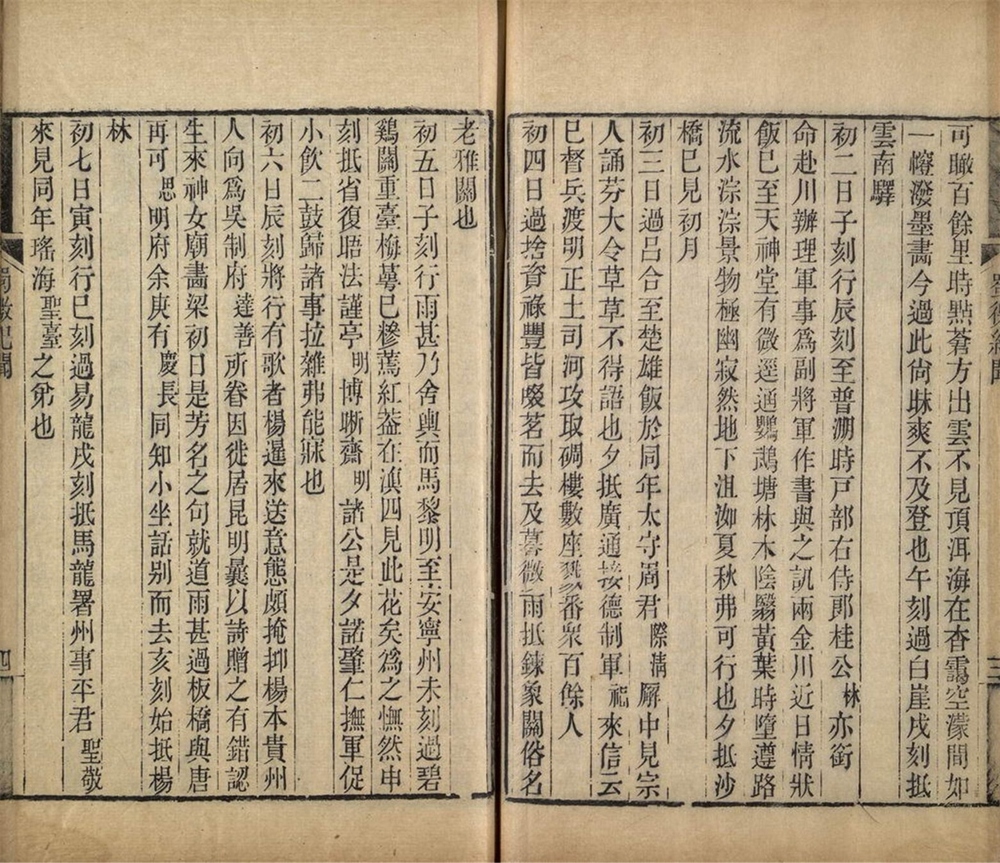 可瞰百餘里時點蒼方出雲不見頂洱海在杳靄空濛間如
一幮潑墨畵今過此尙昧爽不及登也午刻過白崖戌刻抵
雲南驛
初二日子刻行辰刻至普淜時戸部右侍郎桂公林亦銜
命赴川辦理軍事爲副將軍作書與之訊兩金川近日情狀
飯巳至天神堂有微逕通鸚鵡塘林木陰翳黃葉時墮遵路
流水淙淙景物極幽寂然地下沮洳夏秋弗可行也夕抵沙
橋巳見初月
初三日過呂合至楚雄飯於同年太守周君際淸廨中見宗
人誦芬大令草草不得語也夕抵廣通接德制軍福來信云
巳督兵渡明正土司河攻取碉樓數座殲番衆百餘人
初四日過捨資祿豐皆啜茗而去及暮微雨抵鍊象關俗名
老雅關也
初五日子刻行雨甚乃舍輿而馬黎明至安寧州未刻過碧
鷄關重臺梅萼巳糝蔫紅葢在滇四見此花矣爲之憮然申
刻抵省復晤法謹亭明博晣齋明諸公是夕諾羣仁撫軍促
小飲二鼓歸諸事拉雜弗能寐也
初六日辰刻將行有歌者楊暹來送意態頗掩抑楊本貴州
人向爲吳制府達善所眷因徙居昆明曩以詩贈之有錯認
生來神女廟畵梁初日是芳名之句就道雨甚過板橋與唐
再可思明府余庚有慶長同知小坐話别而去亥刻始抵楊
林
初七日寅刻行巳刻過易龍戌刻抵馬龍署州事平君聖敬
來見同年瑤海聖臺之弟也
四
三